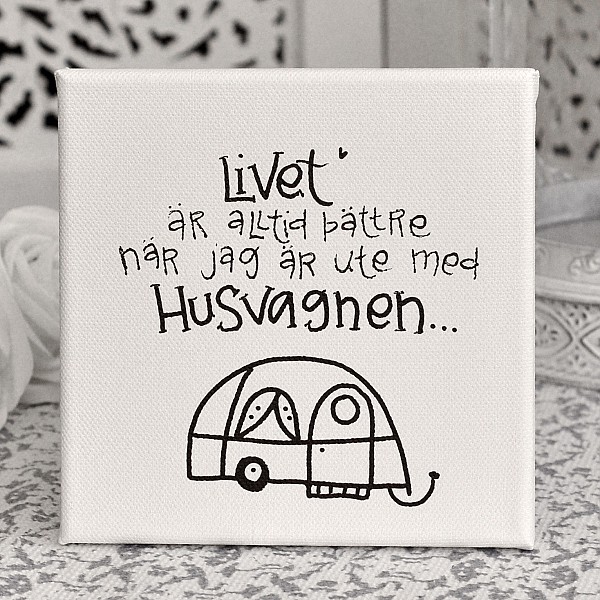 Livet
är alltid bättre
när jag är ute med
Husvagnen...